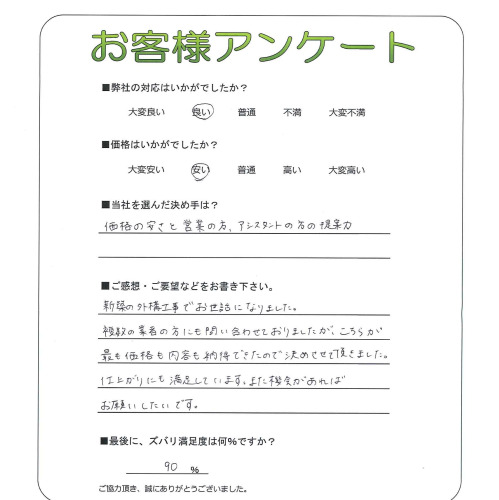 お客様アンケート
■弊社の対応はいかがでしたか？
大変良い 良い 普通 不満 大変不満
■価格はいかがでしたか？
大変安い 安い 普通 高い 大変高い
■当社を選んだ決め手は？
価格の安さと営業の方、アシスタントの方の提案力
■ご感想・ご要望などをお書き下さい。
新築の外構工事でお世話になりました。
複数の業者の方にも問い合わせておりましたが、こちらが
最も価格も内容も納得できたので決めさせて頂きました。
仕上がりにも満足しています。また機会があれば
お願いしたいです。
■最後に、ズバリ満足度は何%ですか？
90 %
ご協力頂き、誠にありがとうございました。